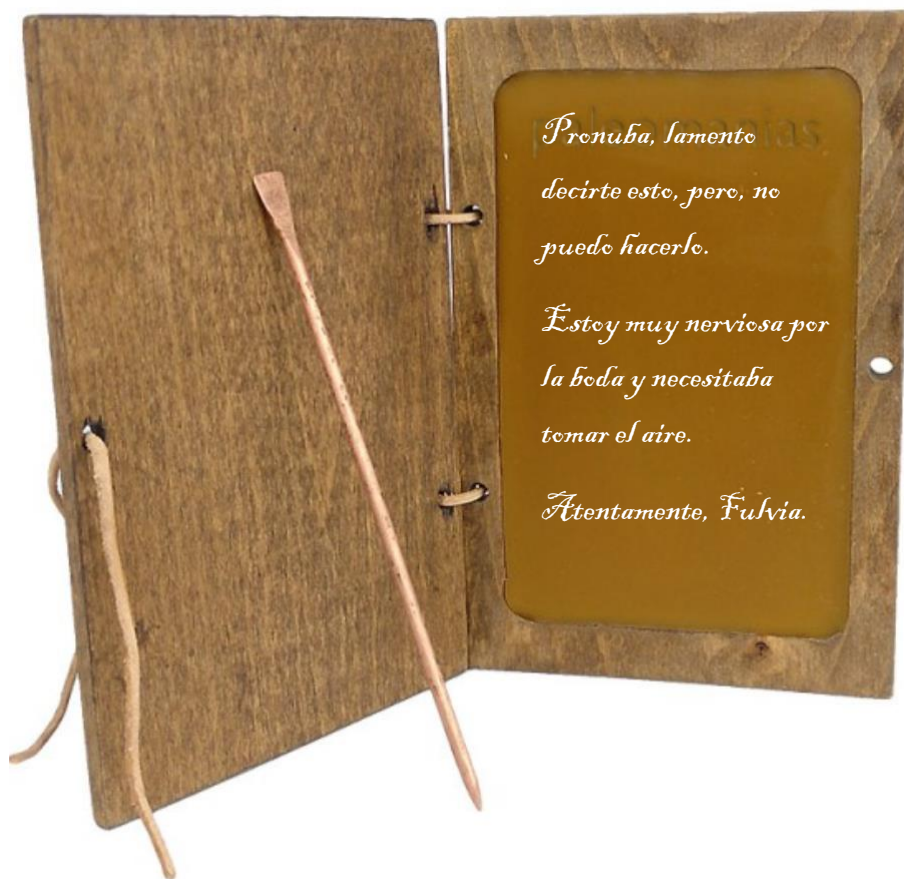 Pronuba, lamento
decirte esto, pero, no
puedo hacerlo.
Estoy muy nerviosa por
la boda y necesitaba
tomar el aire.
Atentamente, Fulvia.